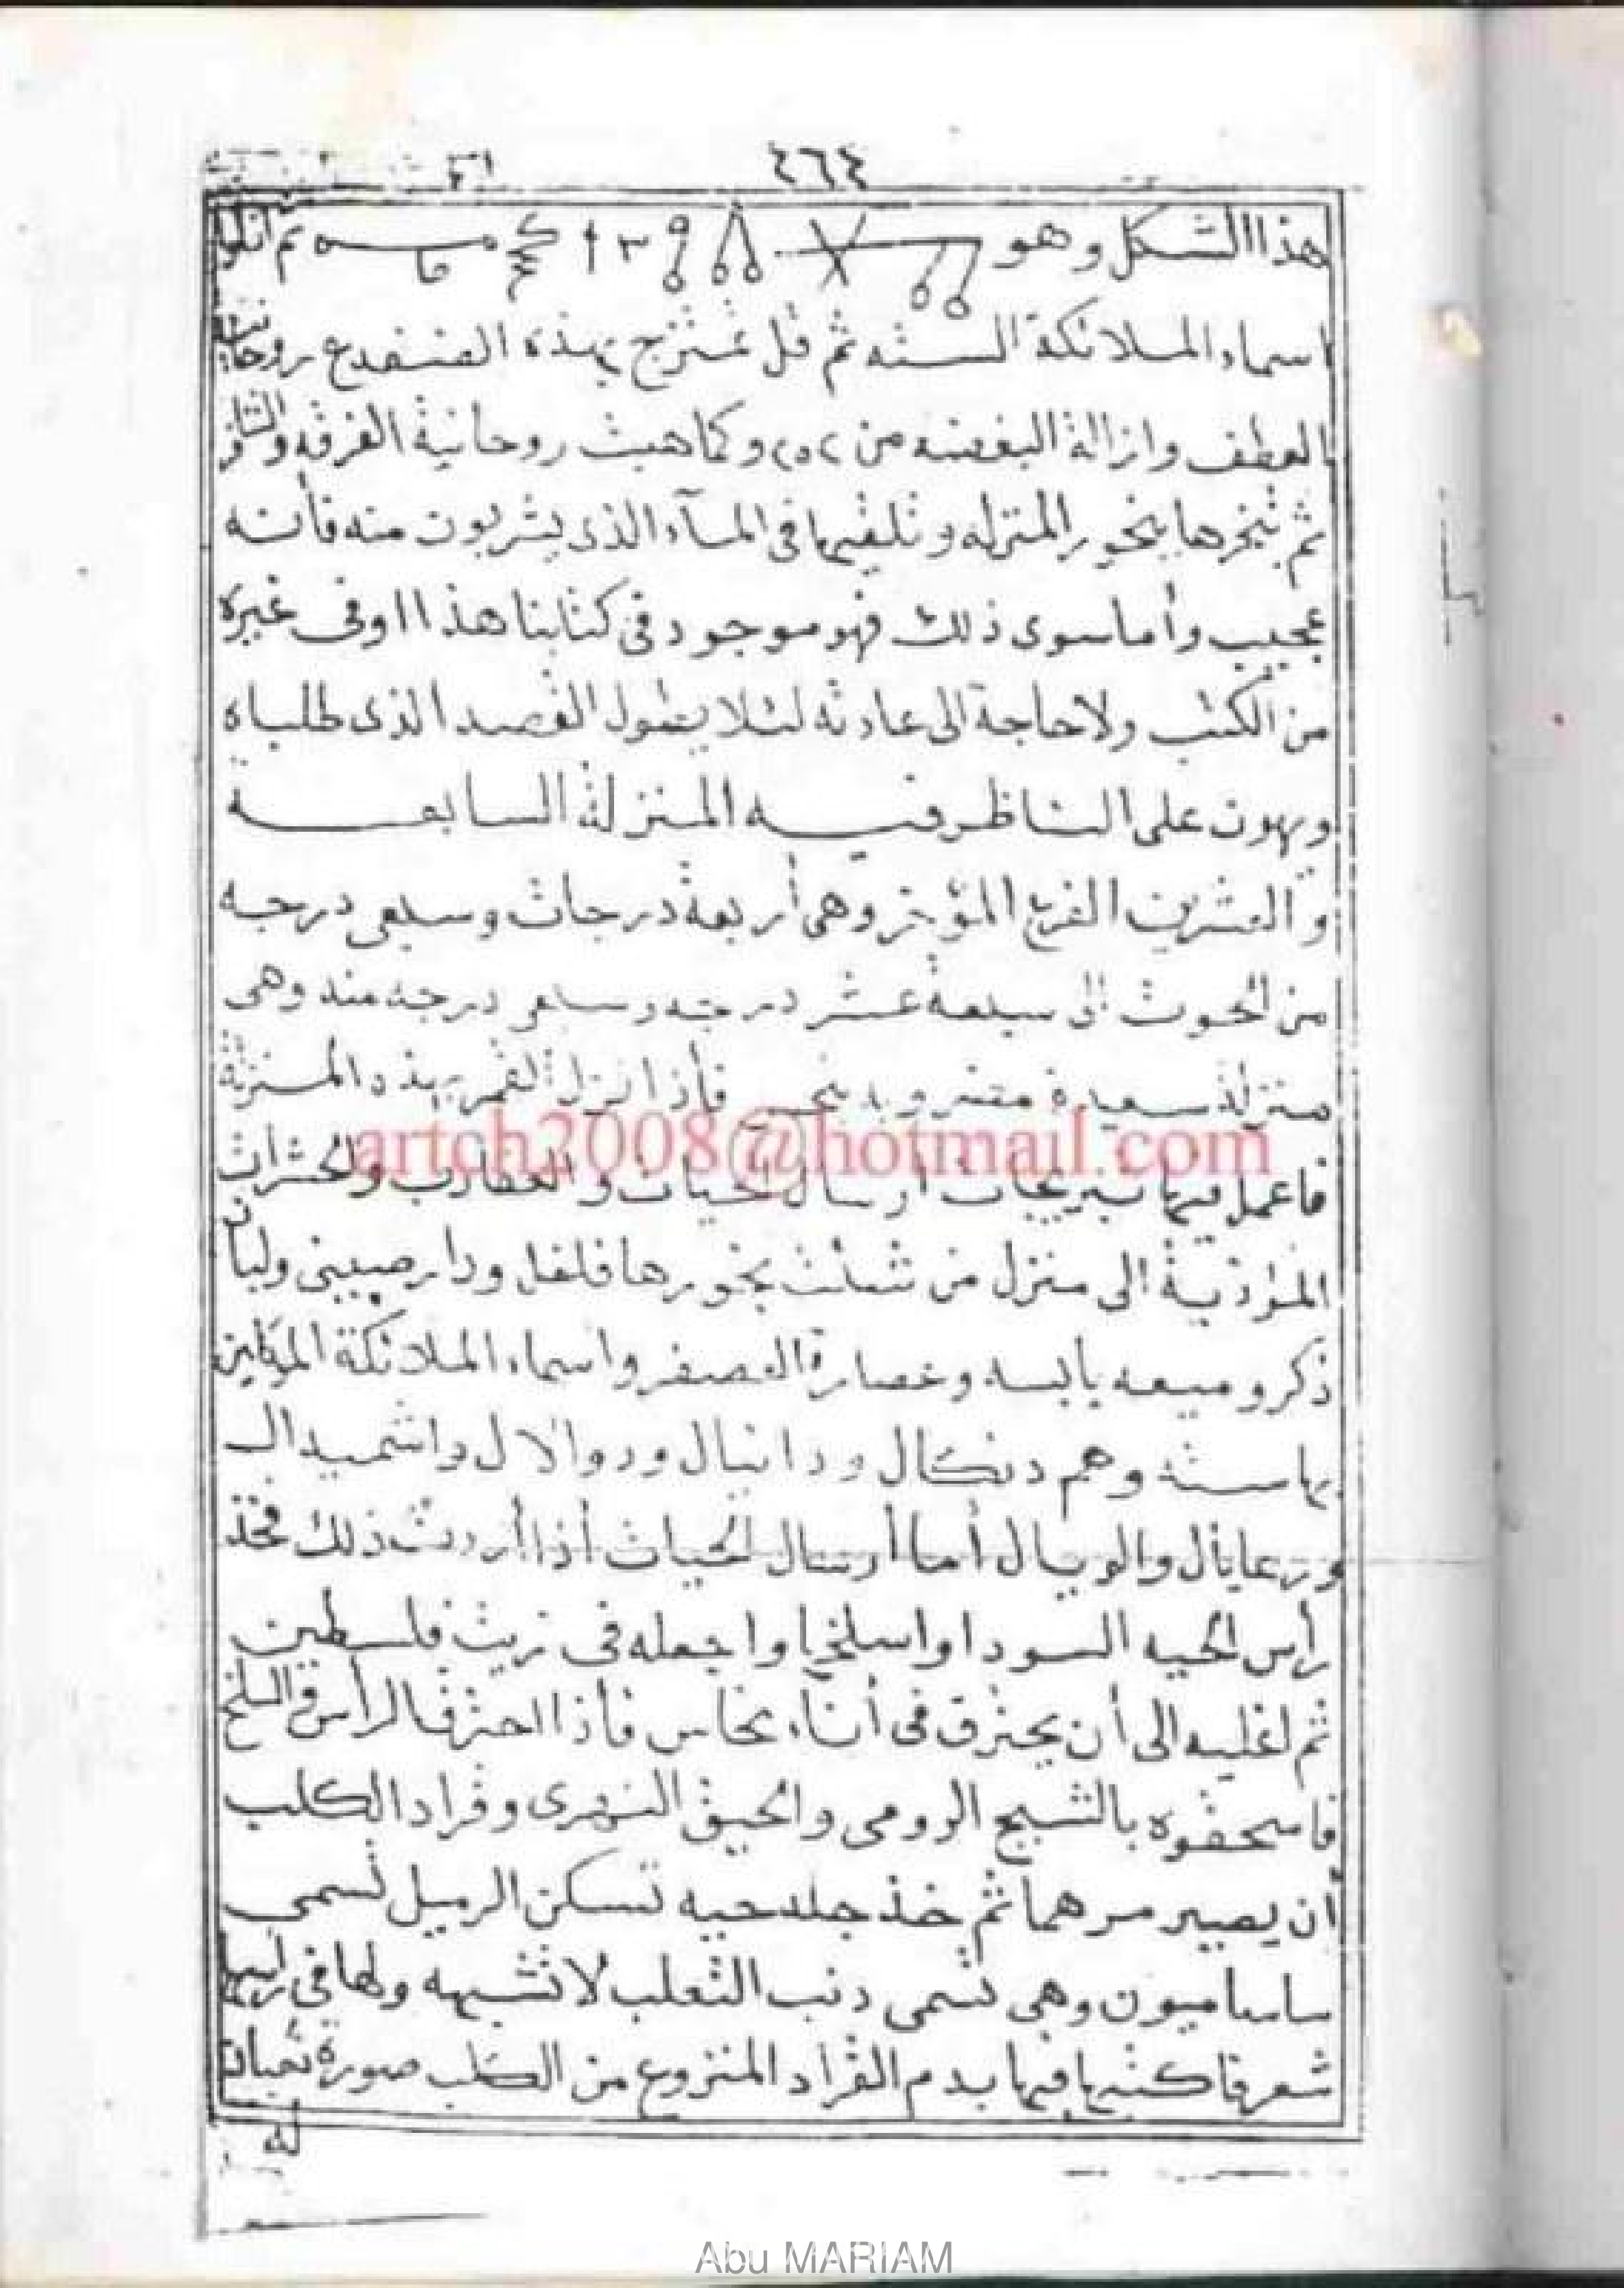 ٤٦٤
هذا الشكل وهو ثم اتلوا
اسماء الملائكة السته ثم قل تمتزج بهذه الضفدع روحانية
العطف وازالة البغضه من وكما هبت روحانية الفرقه والتنافر
ثم تبخرها ببخور المنزله وتلقيها في الماء الذي يشربون منه فأنه
عجيب وأما سوى ذلك فهو موجود في كتابنا هذا اوفى غيره
من الكتب ولا حاجة الى عادته لئلا يطول القصد الذي طلبناه
ويهون على الناظر فيه المنزلة السابعه
والعشرين الفرغ المؤخر وهي أربعة درجات وسبعى درجه
من الحوت الى سبعة عشر درجه وسبعى درجه منه وهي
منزلة سعيدة فأذا نزل القمر بهذه المنزلة
artch2008@hotmail.com
فاعمل فيها نيرنجات ارسال الحيات والعقارب والحشرات
المؤذية الى منزل من شئت بخورها فلفل ودارصيني ولبان
ذكر وميعه يابسه وعصارة العصفر واسماء الملائكة الموكلين
بها سته وهم دنكال ودانيال ودوالال واشميدال
ورعايال والويال أما أرسال الحيات أذا أردت ذلك فخذ
رأس الحيه السودا واسلخها واجعله في زيت فلسطين
ثم اغليه الى أن يحترق في أناء نحاس فأذا احترق الرأس والسلخ
فاسحقوه بالشيح الرومي والحبق النهرى وقراد الكلب
أن يصير مرهما ثم خذ جلد حيه تسكن الرميل تسمى
ساساميون وهي تسمى دنب الثعلب لا تشبهه ولها في رأسها
شعر فاكتبها فيها بدم القراد المنزوع من الكلب صورة ثعبان
له
Abu MARIAM